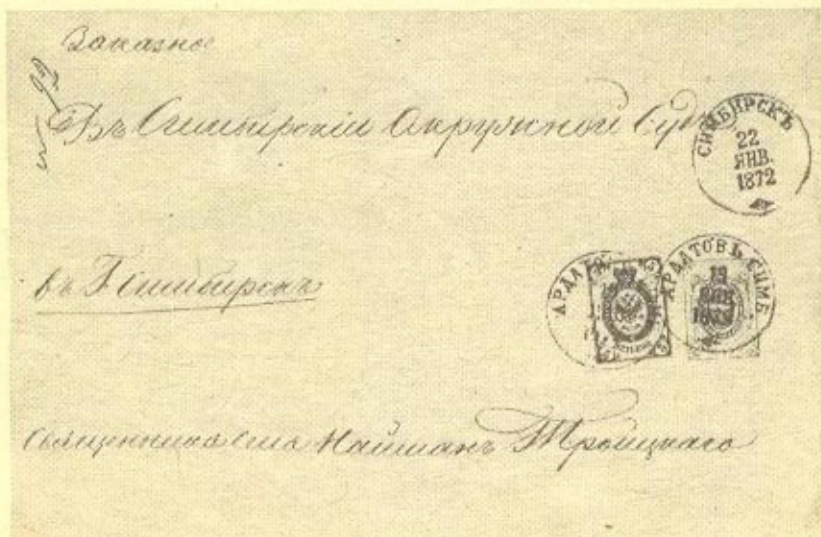 Заказное
Въ Симбирскій Окружной Судъ
СИМБИРСКЪ
22
ЯНВ.
1872
въ Г. Симбирскъ
АРДАТОВЪ СИМБ
19
ЯНВ
1872
Священника села Найманъ Троицкаго